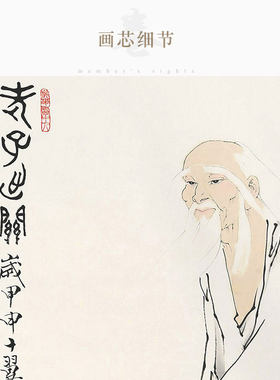 画芯细节
member's rights
老子出關
歲甲申十翼